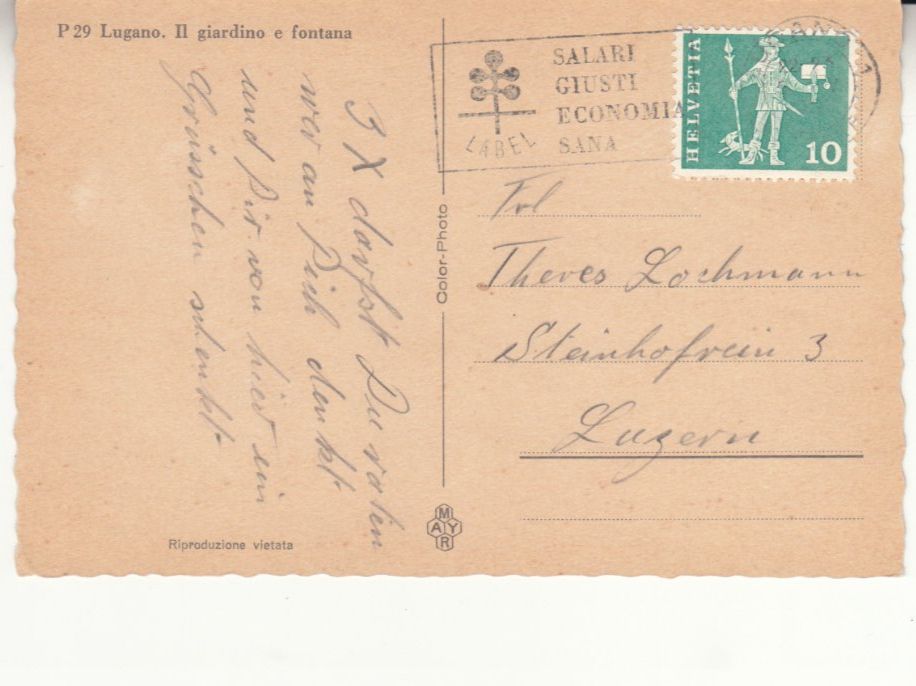 P 29 Lugano. Il giardino e fontana
3 X darfst Du raten
wer an Dich denkt
und Dir von hier ein
Grüsschen schenkt
Riproduzione vietata
Color-Photo
MAYR
LABEL
SALARI
GIUSTI
ECONOMIA
SANA
HELVETIA
10
Frl
Theres Lochmann
Steinhofrain 3
Luzern